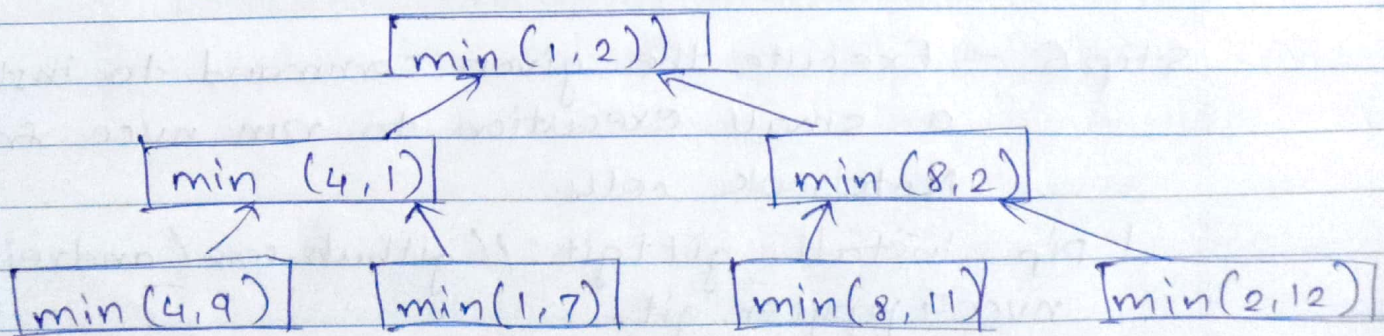 min (1, 2))
min (4, 1)
min (8, 2)
min (4, 9)
min (1, 7)
min (8, 11)
min (2, 12)